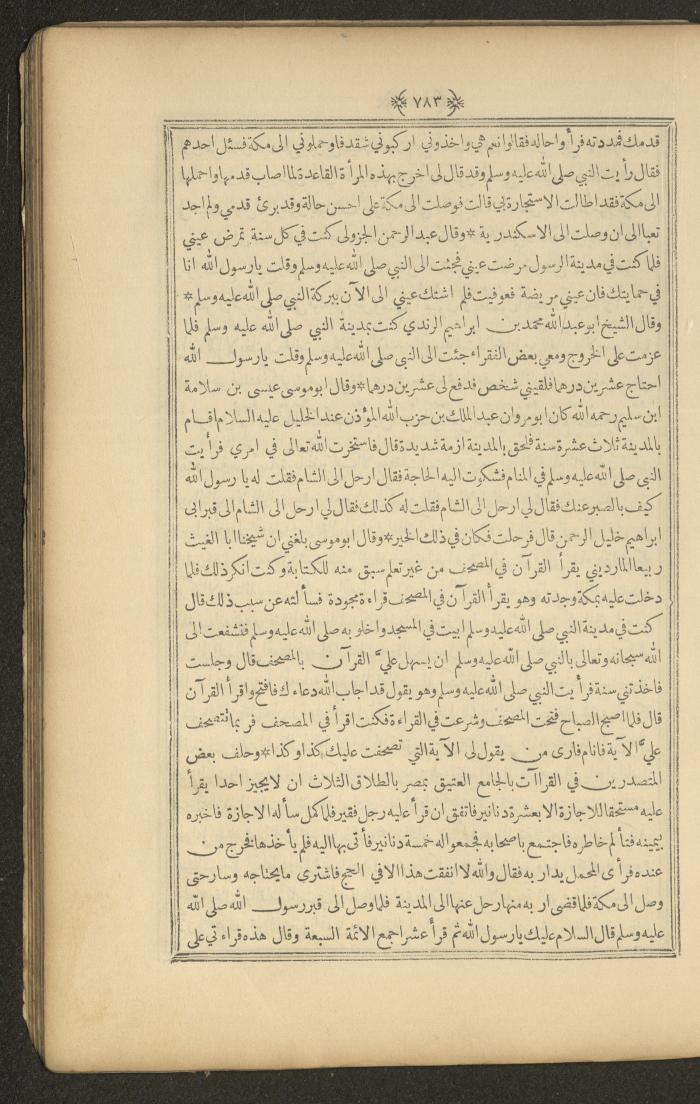 ﴿ ٧٨٣ ﴾
قدمك فمددته فرأوا حاله فقالوا نعم هي واخذوني اركبوني شقدفا وحملوني الى مكة فسئل احدهم
فقال رأيت النبي صلى الله عليه وسلم وقد قال لى اخرج بهذه المرأة القاعدة لما اصاب قدمها واحملها
الى مكة فقد اطالت الاستجارة بي قالت فوصلت الى مكة على احسن حالة وقد برئ قدمي ولم اجد
تعبا الى ان وصلت الى الاسكندرية * وقال عبد الرحمن الجزولى كنت في كل سنة تمرض عيني
فلما كنت في مدينة الرسول مرضت عيني فجئت الى النبي صلى الله عليه وسلم وقلت يارسول الله انا
في حمايتك فان عيني مريضة فعوفيت فلم اشتك عيني الى الآن ببركة النبي صلى الله عليه وسلم *
وقال الشيخ ابو عبد الله محمد بن ابراهيم الرندي كنت بمدينة النبي صلى الله عليه وسلم فلما
عزمت على الخروج ومعي بعض الفقراء جئت الى النبي صلى الله عليه وسلم وقلت يارسول الله
احتاج عشرين درهما فلقيني شخص فدفع لى عشرين درهما * وقال ابو موسى عيسى بن سلامة
ابن سليم رحمه الله كان ابو مروان عبد الملك بن حزب الله المؤذن عند الخليل عليه السلام اقام
بالمدينة ثلاث عشرة سنة فلحق بالمدينة ازمة شديدة قال فاستخرت الله تعالى في امري فرأيت
النبي صلى الله عليه وسلم في المنام فشكوت اليه الحاجة فقال ارحل الى الشام فقلت له يا رسول الله
كيف بالصبر عنك فقال لي ارحل الى الشام فقلت له كذلك فقال لي ارحل الى الشام الى قبر ابى
ابراهيم خليل الرحمن قال فرحلت فكان في ذلك الخير * وقال ابو موسى بلغني ان شيخنا ابا الغيث
ربيعا المارديني يقرأ القرآن في المصحف من غير تعلم سبق منه للكتابة وكنت انكر ذلك فلما
دخلت عليه بمكة وجدته وهو يقرأ القرآن في المصحف قراءة مجودة فسألته عن سبب ذلك قال
كنت في مدينة النبي صلى الله عليه وسلم ابيت في المسجد واخلو به صلى الله عليه وسلم فتشفعت الى
الله سبحانه وتعالى بالنبي صلى الله عليه وسلم ان يسهل عليَّ القرآن بالمصحف قال وجلست
فاخذتني سنة فرأيت النبي صلى الله عليه وسلم وهو يقول قد اجاب الله دعاءك فافتح واقرأ القرآن
قال فلما اصبح الصباح فتحت المصحف وشرعت في القراءة فكنت اقرأ في المصحف فربما تتصحف
عليَّ الآية فانام فارى من يقول لى الآية التي تصحفت عليك كذا وكذا * وحلف بعض
المتصدرين في القراآت بالجامع العتيق بمصر بالطلاق الثلاث ان لا يجيز احدا يقرأ
عليه مستحقا للاجازة الا بعشرة دنانير فاتفق ان قرأ عليه رجل فقير فلما كمل سأله الاجازة فاخبره
بيمينه فتألم خاطره فاجتمع باصحابه فجمعوا له خمسة دنانير فأتى بها اليه فلم يأخذها فخرج من
عنده فرأى المحمل يدار به فقال والله لا انفقت هذا الا في الحج فاشترى ما يحتاجه وسار حتى
وصل الى مكة فلما قضى اربه منها رحل عنها الى المدينة فلما وصل الى قبر رسول الله صلى الله
عليه وسلم قال السلام عليك يارسول الله ثم قرأ عشرا جمع الائمة السبعة وقال هذه قراءتي على